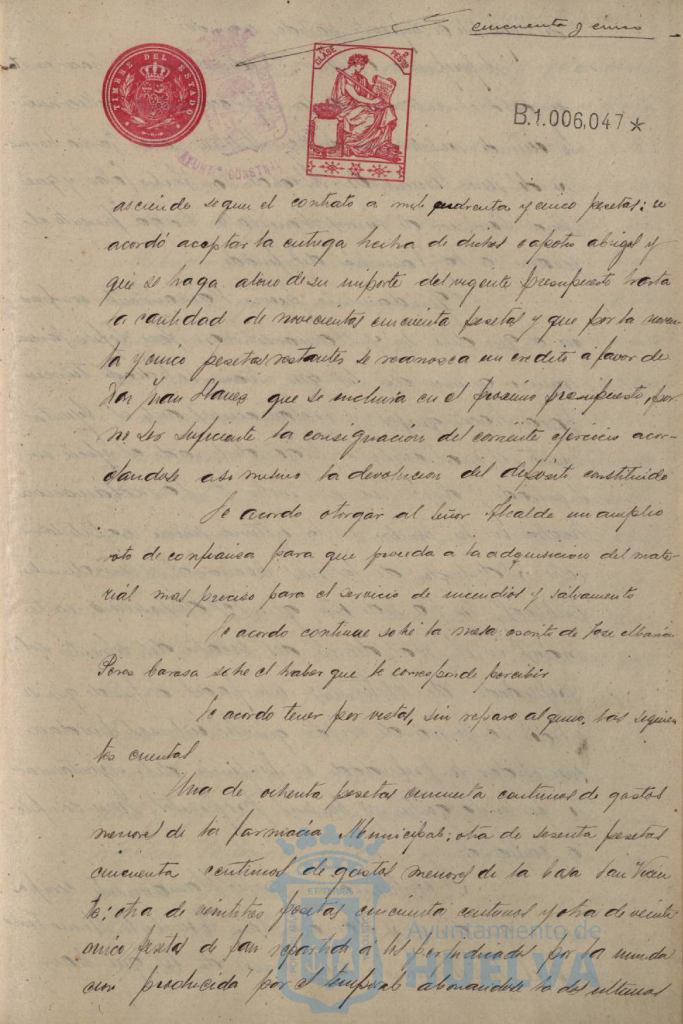 cincuenta y cinco
TIMBRE DEL ESTADO
CLASE
PESETA
AYUNT CONSTI
B.1.006,047*
asciende segun el contrato á mil cuarenta y cinco pesetas: se
acordó aceptar la entrega hecha de dichos capotes abrigos y
que se haga abono de su importe del vigente presupuesto hasta
la cantidad de novecientas cincuenta pesetas y que por la noven
ta y cinco pesetas restantes se reconosca un credito á favor de
Don Juan Llanes que se incluira en el proximo presupuesto, por
no ser suficiente la consignación del corriente ejercicio acor
dandose asi mismo la devolucion del deposito constituido
Se acordo otorgar al Señor Alcalde un amplio
voto de confiansa para que proceda á la adquisicion del mate-
rial mas preciso para el servicio de incendios y salvamento
Se acordo continue sobre la mesa escrito de Jose Maria
Peres sobre el haber que le corresponde percibir
Se acordo tener por vistas, sin reparo alguno, las siguien
tes cuentas
Una de ochenta pesetas cincuenta centimos de gastos
menores de la farmacia Municipal; otra de sesenta pesetas
cincuenta centimos de gastos menores de la Casa San Vicen
te; otra de veintitres pesetas cincuenta centimos y otra de veinte
cinco pesetas de pan repartido á los perjudicados por la inunda
cion producida por el temporal abonandose las dos ultimas
Ayuntamiento de
HUELVA